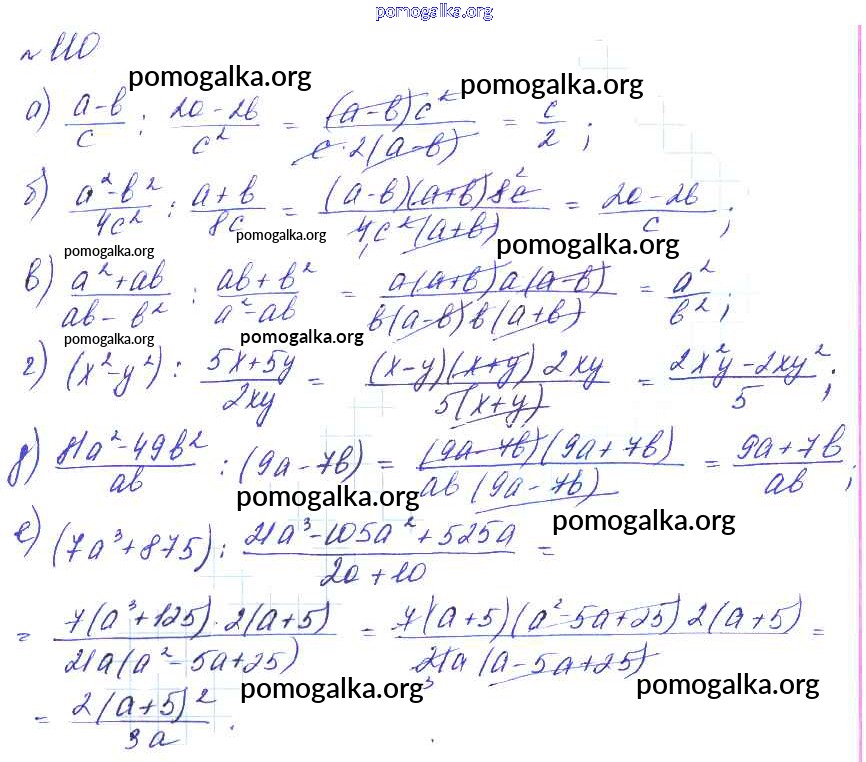 pomogalka.org
№ 110
pomogalka.org pomogalka.org
а) (a-b)/c : (2a-2b)/c² = ((a-b)c²)/(c·2(a-b)) = c/2 ;
б) (a²-b²)/4c² : (a+b)/8c = ((a-b)(a+b)8²c)/(4₁c²(a+b)) = (2a-2b)/c ;
pomogalka.org pomogalka.org pomogalka.org
в) (a²+ab)/(ab-b²) : (ab+b²)/(a²-ab) = (a(a+b)a(a-b))/(b(a-b)b(a+b)) = a²/b² ;
pomogalka.org pomogalka.org
г) (x²-y²) : (5x+5y)/2xy = ((x-y)(x+y)2xy)/(5(x+y)) = (2x²y-2xy²)/5 ;
д) (81a²-49b²)/ab : (9a-7b) = ((9a-7b)(9a+7b))/(ab(9a-7b)) = (9a+7b)/ab ;
pomogalka.org pomogalka.org
е) (7a³+875) : (21a³-105a²+525a)/(2a+10) =
= (7(a³+125)·2(a+5))/(21a(a²-5a+25)) = (7(a+5)(a²-5a+25)2(a+5))/(21₃a(a-5a+25)) =
pomogalka.org pomogalka.org
= (2(a+5)²)/3a .